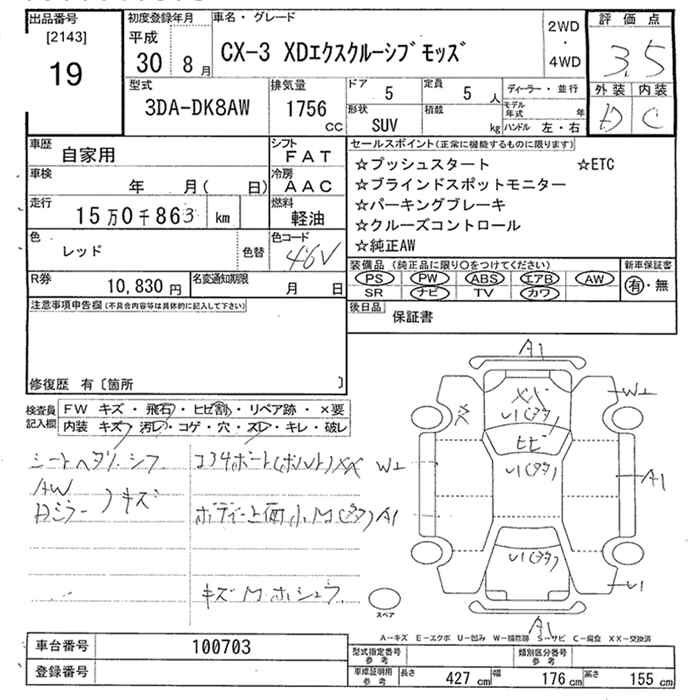 出品番号
[2143]
19
初度登録年月
平成
30 8月
車名・グレード
CX-3 XDエクスクルーシブモッズ
2WD
・
4WD
評価点
3.5
外装 内装
D C
型式
3DA-DK8AW
排気量
1756
CC
ドア
5
定員
5 人
形状
SUV
積載
kg
ディーラー・並行
モデル年式 年
ハンドル 左・右
車歴
自家用
シフト
FAT
車検
年 月( 日)
冷房
AAC
走行
15万0千863 km
燃料
軽油
色
レッド
色替
色コード
46V
R券
10,830 円
名変通知期限
月 日
セールスポイント(正常に機能するものに限ります)
☆プッシュスタート ☆ETC
☆ブラインドスポットモニター
☆パーキングブレーキ
☆クルーズコントロール
☆純正AW
装備品 (純正品に限り〇をつけてください) 新車保証書
PS PW ABS エアB AW
SR ナビ TV カワ
有・無
後日品
保証書
注意事項申告欄(不具合内容等は具体的に記入して下さい)
修復歴 有〔箇所 〕
検査員
記入欄
FW キズ・飛石・ヒビ割・リペア跡・×要
内装 キズ・汚レ・コゲ・穴・スレ・キレ・破レ
シートヘタリ、シワ
AW
Dミラー
キズ
コアサポート(ボルト)XX
ボディー上面小M(タタ)A1
キズ M ホシュウ
A1
XX
U1(タタ)
ヒビ
U1(タタ)
U1(タタ)
W⊥
W⊥
A1
A1
U1
スペア
A-キズ E-エクボ U-凹み W-補修跡 S-サビ C-腐食 XX-交換済
車台番号
100703
登録番号
型式指定番号
参考
類別区分番号
参考
車検証記載
参考
長さ 427 cm 幅 176 cm 高さ 155 cm